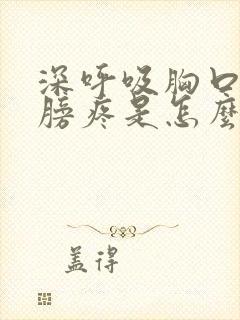 深呼吸胸口
膀疼是怎麼
盖得